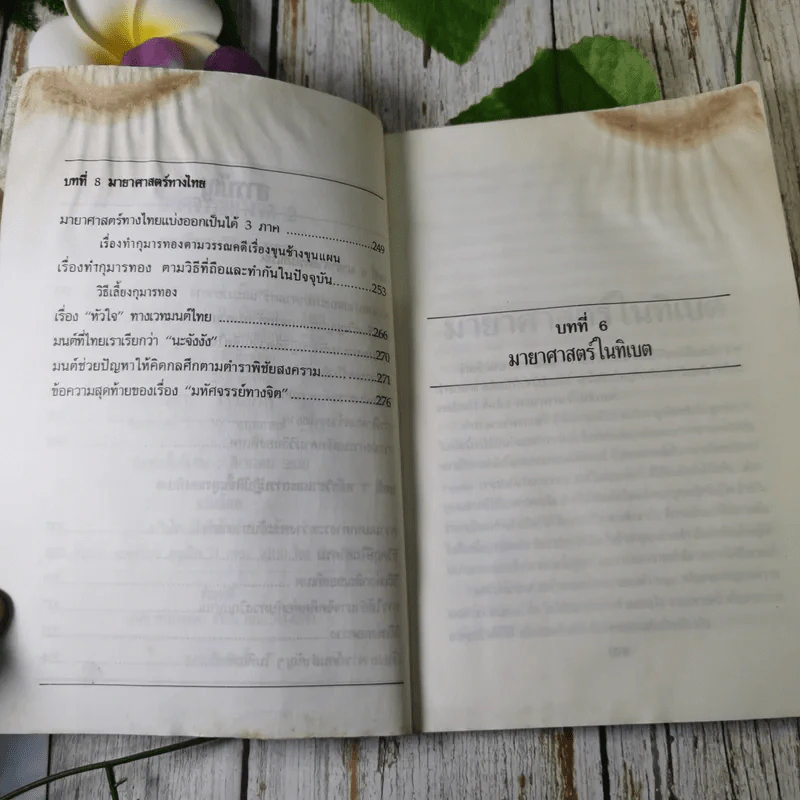 บทที่ 8 มายาศาสตร์ทางไทย
มายาศาสตร์ทางไทยแบ่งออกเป็นได้ 3 ภาค ........................249
เรื่องทำกุมารทองตามวรรณคดีเรื่องขุนช้างขุนแผน
เรื่องทำกุมารทอง ตามวิธีที่ถือและทำกันในปัจจุบัน..........253
วิธีเลี้ยงกุมารทอง
เรื่อง “หัวใจ” ทางเวทมนต์ไทย ........................266
มนต์ที่ไทยเราเรียกว่า “นะจังงัง” ........................270
มนต์ช่วยปัญหาให้คิดกลศึกตามตำราพิชัยสงคราม..............271
ข้อความสุดท้ายของเรื่อง “มหัศจรรย์ทางจิต” ..................276
บทที่ 6
มายาศาสตร์ในทิเบต